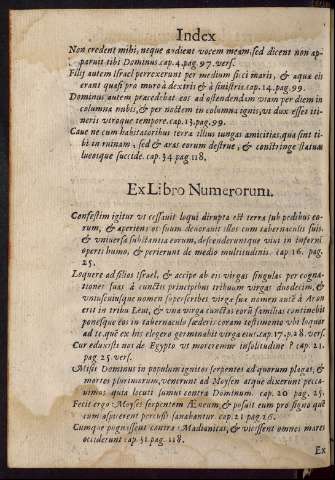 Index
Non credent mihi, neque audient vocem meam, sed dicent non ap-
paruit tibi Dominus. cap. 4. pag. 97. vers.
Filij autem Israel perrexerunt per medium sicci maris, & aquæ eis
erant quasi pro muro à dextris & à sinistris. cap. 14. pag. 99.
Dominus autem præcedebat eos ad ostendendam viam per diem in
columna nubis, & per noctem in columna ignis, vt dux esset iti-
neris vtroque tempore. cap. 13. pag. 99.
Caue ne cum habitatoribus terræ illius iungas amicitias, quæ sint ti-
bi in ruinam, sed & aras eorum destrue, & confringe statuas
lucosque succide. cap. 34. pag. 118.
Ex Libro Numerorum.
Confestim igitur vt cessauit loqui dirupta est terra sub pedibus eo-
rum, & aperiens os suum deuorauit illos cum tabernaculis suis,
& vniuersa substantia eorum, descenderuntque viui in infernũ
operti humo, & perierunt de medio multitudinis. cap. 16. pag.
25.
Loquere ad filios Israel, & accipe ab eis virgas singulas per cogna-
tiones suas à cunctis principibus tribuum virgas duodecim, &
vniuscuiusque nomen superscribes virgæ suæ nomen autẽ à Aron
erit in tribu Leui, & vna virga cunctas eorũ familias continebit
ponesque eas in tabernaculo fœderis coram testimonio vbi loquar
ad te. quẽ ex his elegero germinabit virga eius. cap. 17. p. 28. vers.
Cur eduxisti nos de Egypto vt moreremur insolitudine? cap. 21.
pag. 25. vers.
Misit Dominus in populum ignitos serpentes ad quorum plagas, &
mortes plurimorum, venerunt ad Moysen atque dixerunt pecca-
uimus quia locuti sumus contra Dominum. cap. 20 pag. 25.
Fecit ergo Moyses serpentem Æneum, & posuit eum pro signo quẽ
cum aspicerent percussi sanabantur. cap. 21. pag. 26.
Cumque pugnassent contra Madianitas, & vicissent omnes mares
occiderunt. cap. 31. pag. 118.
Ex